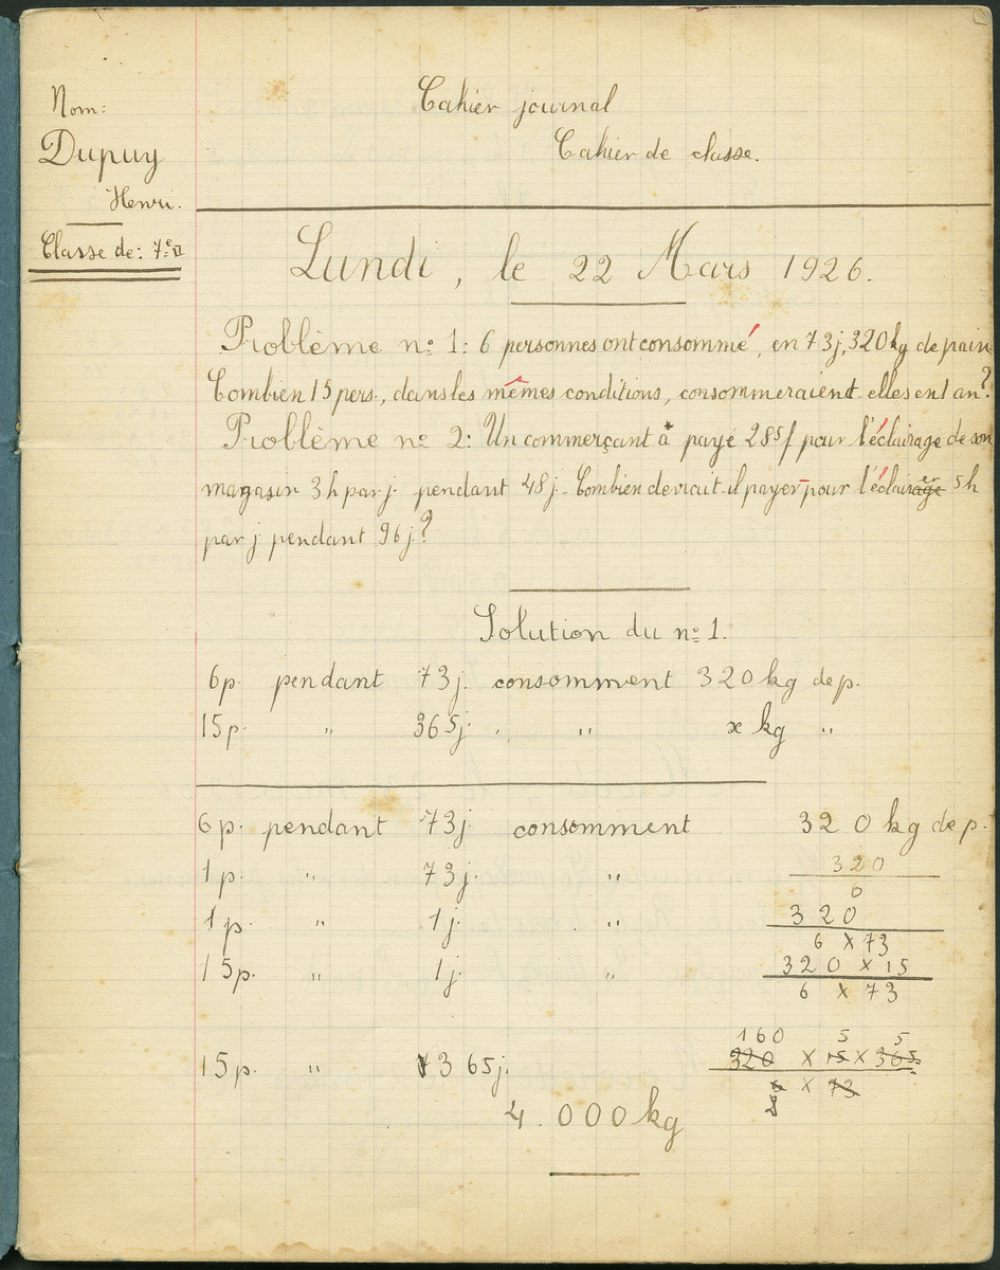 Nom:
Dupuy
Henri.
Classe de: 7e
Cahier journal
Cahier de classe.
Lundi, le 22 Mars 1926.
Problème no 1: 6 personnes ont consommé, en 73j, 320kg de pain.
Combien 15 pers., dans les mêmes conditions, consommeraient-elles en 1 an?
Problème no 2: Un commerçant a payé 285f pour l'éclairage de son
magasin 3h par j. pendant 48j. Combien devrait-il payer pour l'éclairer 5h
par j. pendant 96j?
Solution du no 1.
6p. pendant 73j. consomment 320kg de p.
15p. " 365j. " x kg "
6p. pendant 73j. consomment 320kg de p.
1p. " 73j. " 320
6
1p. " 1j. " 320
6 X 73
15p. " 1j. " 320 X 15
6 X 73
160 5 5
15p. " 365j. 320 X 15 X 365
6 X 73
2
4.000kg